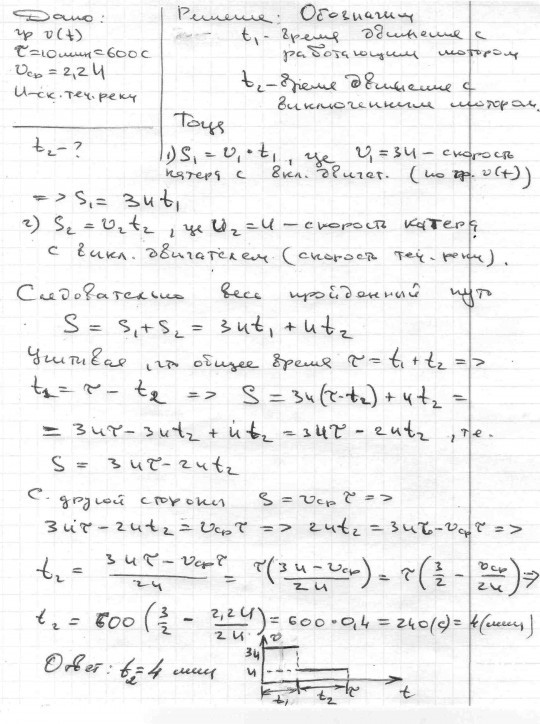 Дано:
гр v(t)
τ=10мин=600с
vср=2,2u
u-ск. теч. реки
t₂-?
Решение: Обозначим
t₁- время движения с
работающим мотором
t₂- время движения с
выключенным мотором.
Тогда
1) S₁ = v₁·t₁, где v₁=3u – скорость
катера с вкл. двигат. (по гр. v(t))
=> S₁ = 3ut₁
2) S₂ = v₂t₂, где u₂=u – скорость катера
с выкл. двигателем (скорость теч. реки).
Следовательно весь пройденный путь
S = S₁+S₂ = 3ut₁ + ut₂
Учитывая, что общее время τ = t₁+t₂ =>
t₁ = τ - t₂ => S = 3u(τ-t₂)+ut₂ =
= 3uτ-3ut₂+ut₂ = 3uτ-2ut₂, т.е.
S = 3uτ-2ut₂
С другой стороны S = vср τ =>
3uτ-2ut₂ = vср τ => 2ut₂ = 3uτ-vср τ =>
t₂ = (3uτ - vср τ)/2u = τ(3u-vср)/2u = τ(3/2 - vср/2u) =>
t₂ = 600 (3/2 - 2,2u/2u) = 600·0,4 = 240(с) = 4(мин)
Ответ: t₂=4 мин
v
3u
u
t₁ t₂ τ t